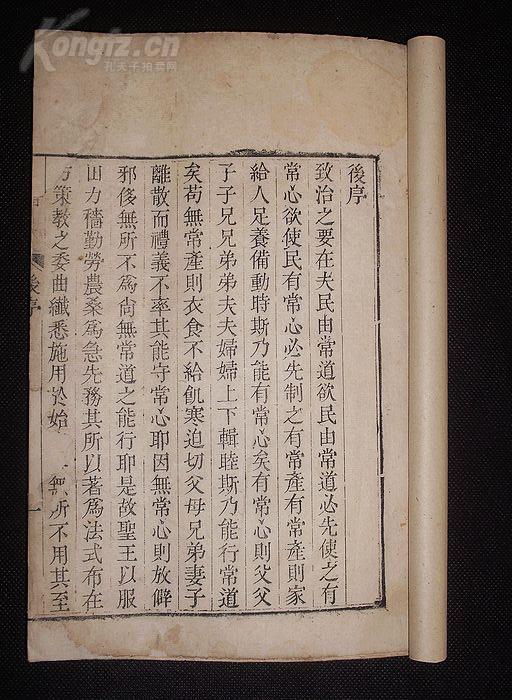 Kongfz.cn
孔夫子拍卖网
後序
致治之要在夫民由常道欲民由常道必先使之有
常心欲使民有常心必先制之有常產有常產則家
給人足養備動時斯乃能有常心矣有常心則父父
子子兄兄弟弟夫夫婦婦上下輯睦斯乃能行常道
矣苟無常產則衣食不給飢寒迫切父母兄弟妻子
離散而禮義不率其能守常心耶因無常心則放僻
邪侈無所不為尚無常道之能行耶是故聖王以服
田力穡勤勞農桑為急先務其所以著為法式布在
方策教之委曲纖悉施用於始 無所不用其至
後序
一